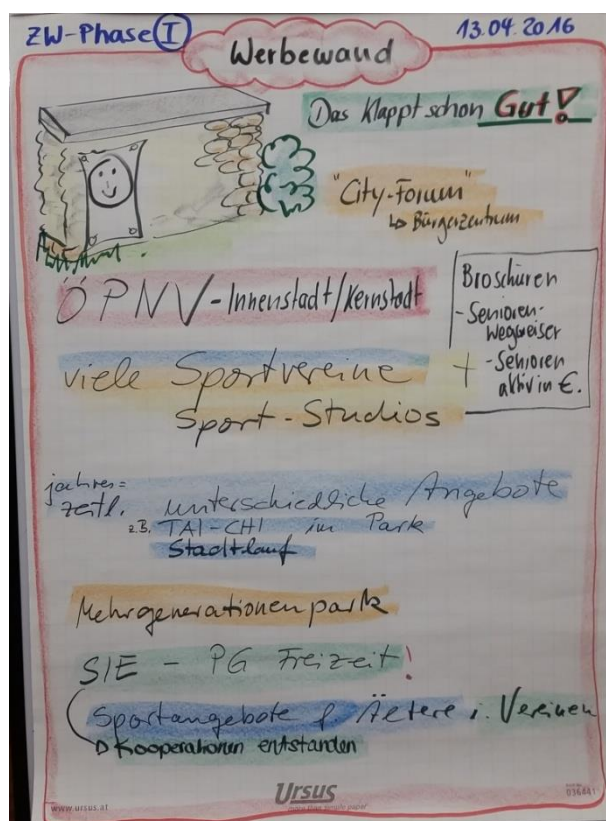 ZW-Phase I
13.04.2016
Werbewand
Das klappt schon Gut!
"City-Forum"
↳ Bürgerzentrum
ÖPNV - Innenstadt/Kernstadt
Broschüren
- Senioren-
Wegweiser
- Senioren
aktiv in €.
viele Sportvereine +
Sport-Studios
jahres=
zeitl. unterschiedliche Angebote
z.B. TAI-CHI im Park
Stadtlauf
Mehrgenerationenpark
SIE - PG Freizeit!
Sportangebote f. Ältere i. Vereinen
Kooperationen entstanden
Ursus
more than simply paper
www.ursus.at
036441